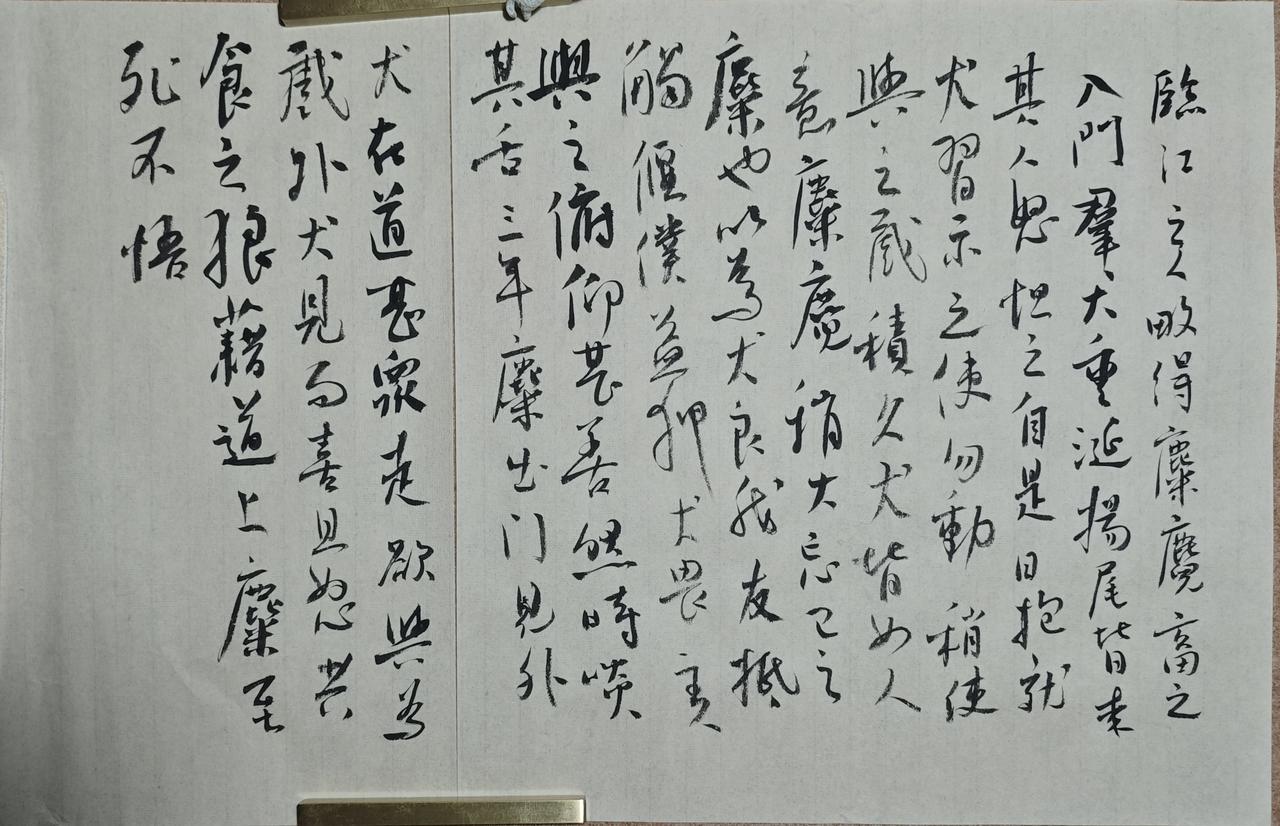 臨江之人畋得麋麑畜之
入門羣犬垂涎揚尾皆来
其人怒怛之自是日抱就
犬習示之使勿動稍使
與之戲積久犬皆如人
意麋麑稍大忘己之
麋也以為犬良我友抵
觸偃僕益狎犬畏主人
與之俯仰甚善然時啖
其舌三年麋出门見外
犬在道甚眾走欲與為
戲外犬見而喜且怒共
食之狼藉道上麋至
死不悟